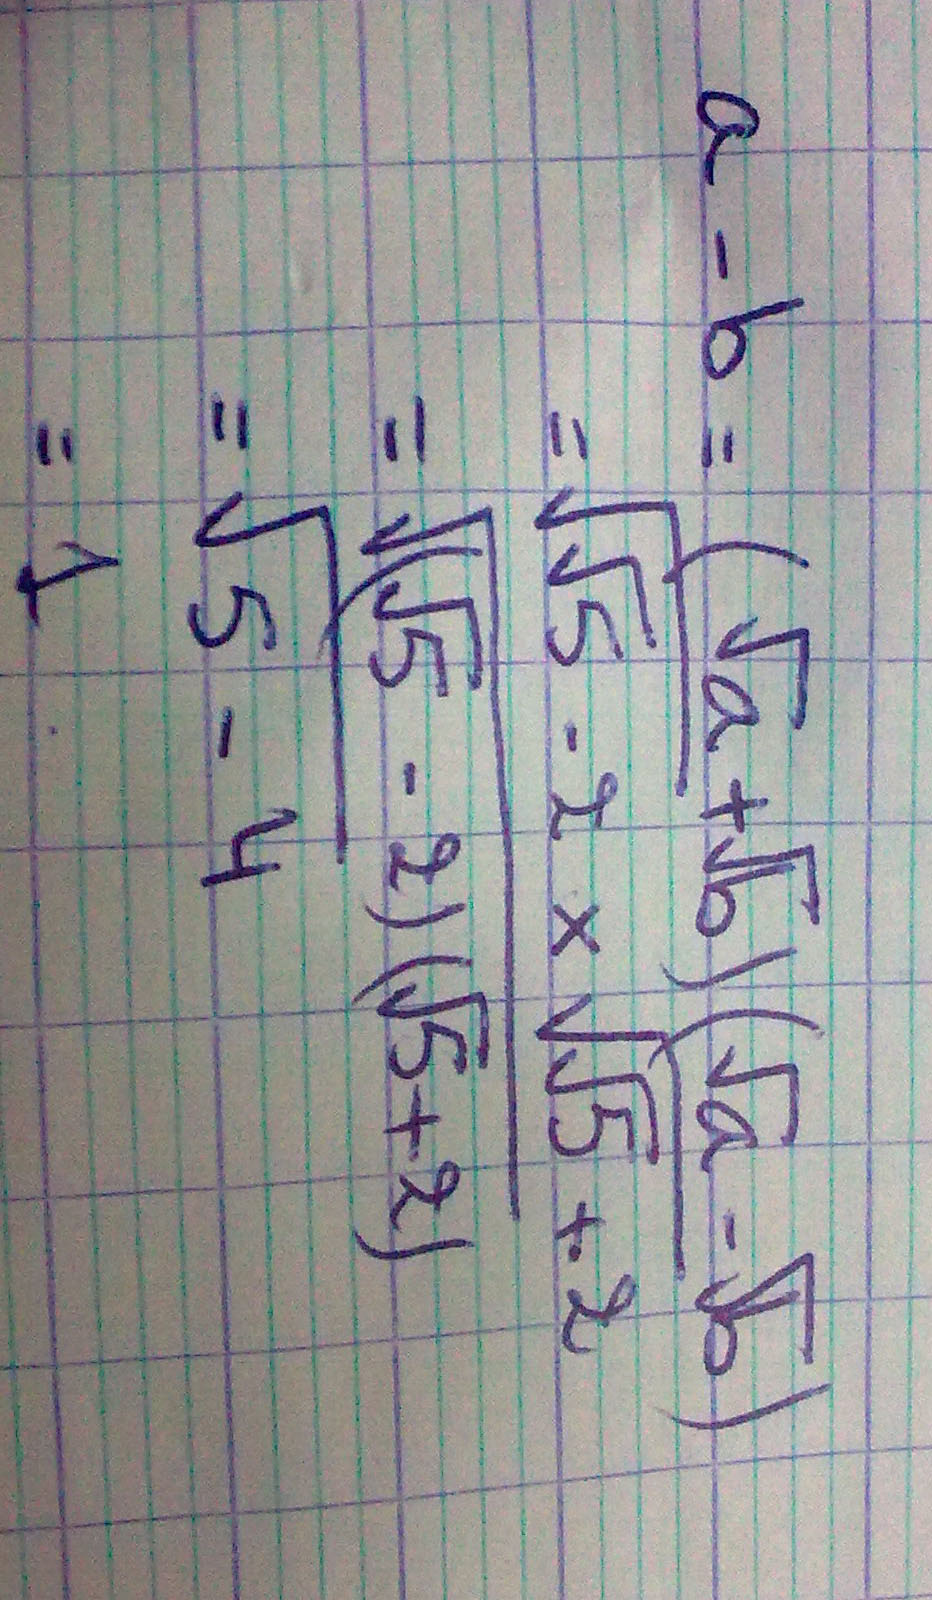 a - b = (√a + √b)(√a - √b)
= √(√5 - 2) × √(√5 + 2)
= √((√5 - 2)(√5 + 2))
= √(5 - 4)
= 1